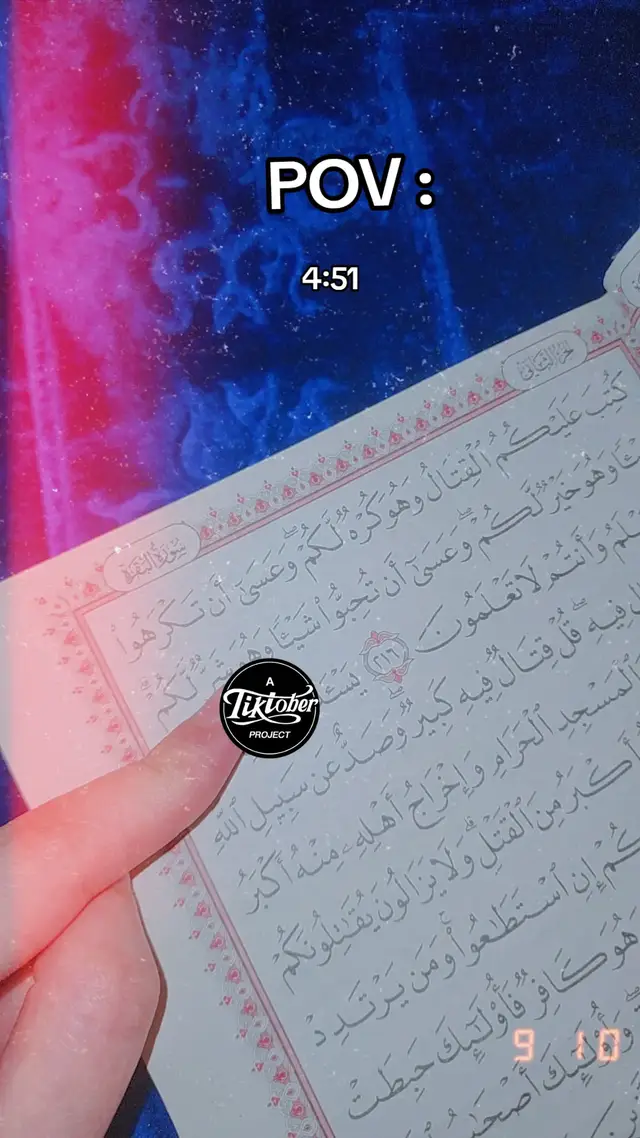 POV :
4:51
سُورَةُ البَقَرَةِ
كُتِبَ عَلَيْكُمُ ٱلْقِتَالُ وَهُوَ كُرْهٌ لَّكُمْ ۖ وَعَسَىٰٓ أَن تَكْرَهُوا۟
وَهُوَ خَيْرٌ لَّكُمْ ۖ وَعَسَىٰٓ أَن تُحِبُّوا۟ شَيْـًٔا وَهُوَ شَرٌّ لَّكُمْ
وَأَنتُمْ لَا تَعْلَمُونَ ٢١٦
فِيهِ ۖ قُلْ قِتَالٌ فِيهِ كَبِيرٌ ۖ وَصَدٌّ عَن سَبِيلِ ٱللَّهِ
ٱلْمَسْجِدِ ٱلْحَرَامِ وَإِخْرَاجُ أَهْلِهِۦ مِنْهُ أَكْبَرُ
أَكْبَرُ مِنَ ٱلْقَتْلِ ۗ وَلَا يَزَالُونَ يُقَـٰتِلُونَكُمْ
إِنِ ٱسْتَطَـٰعُوا۟ ۚ وَمَن يَرْتَدِدْ
هُوَ كَافِرٌ فَأُو۟لَـٰٓئِكَ حَبِطَتْ
وَأُو۟لَـٰٓئِكَ
A
Tiktober
PROJECT
9 10